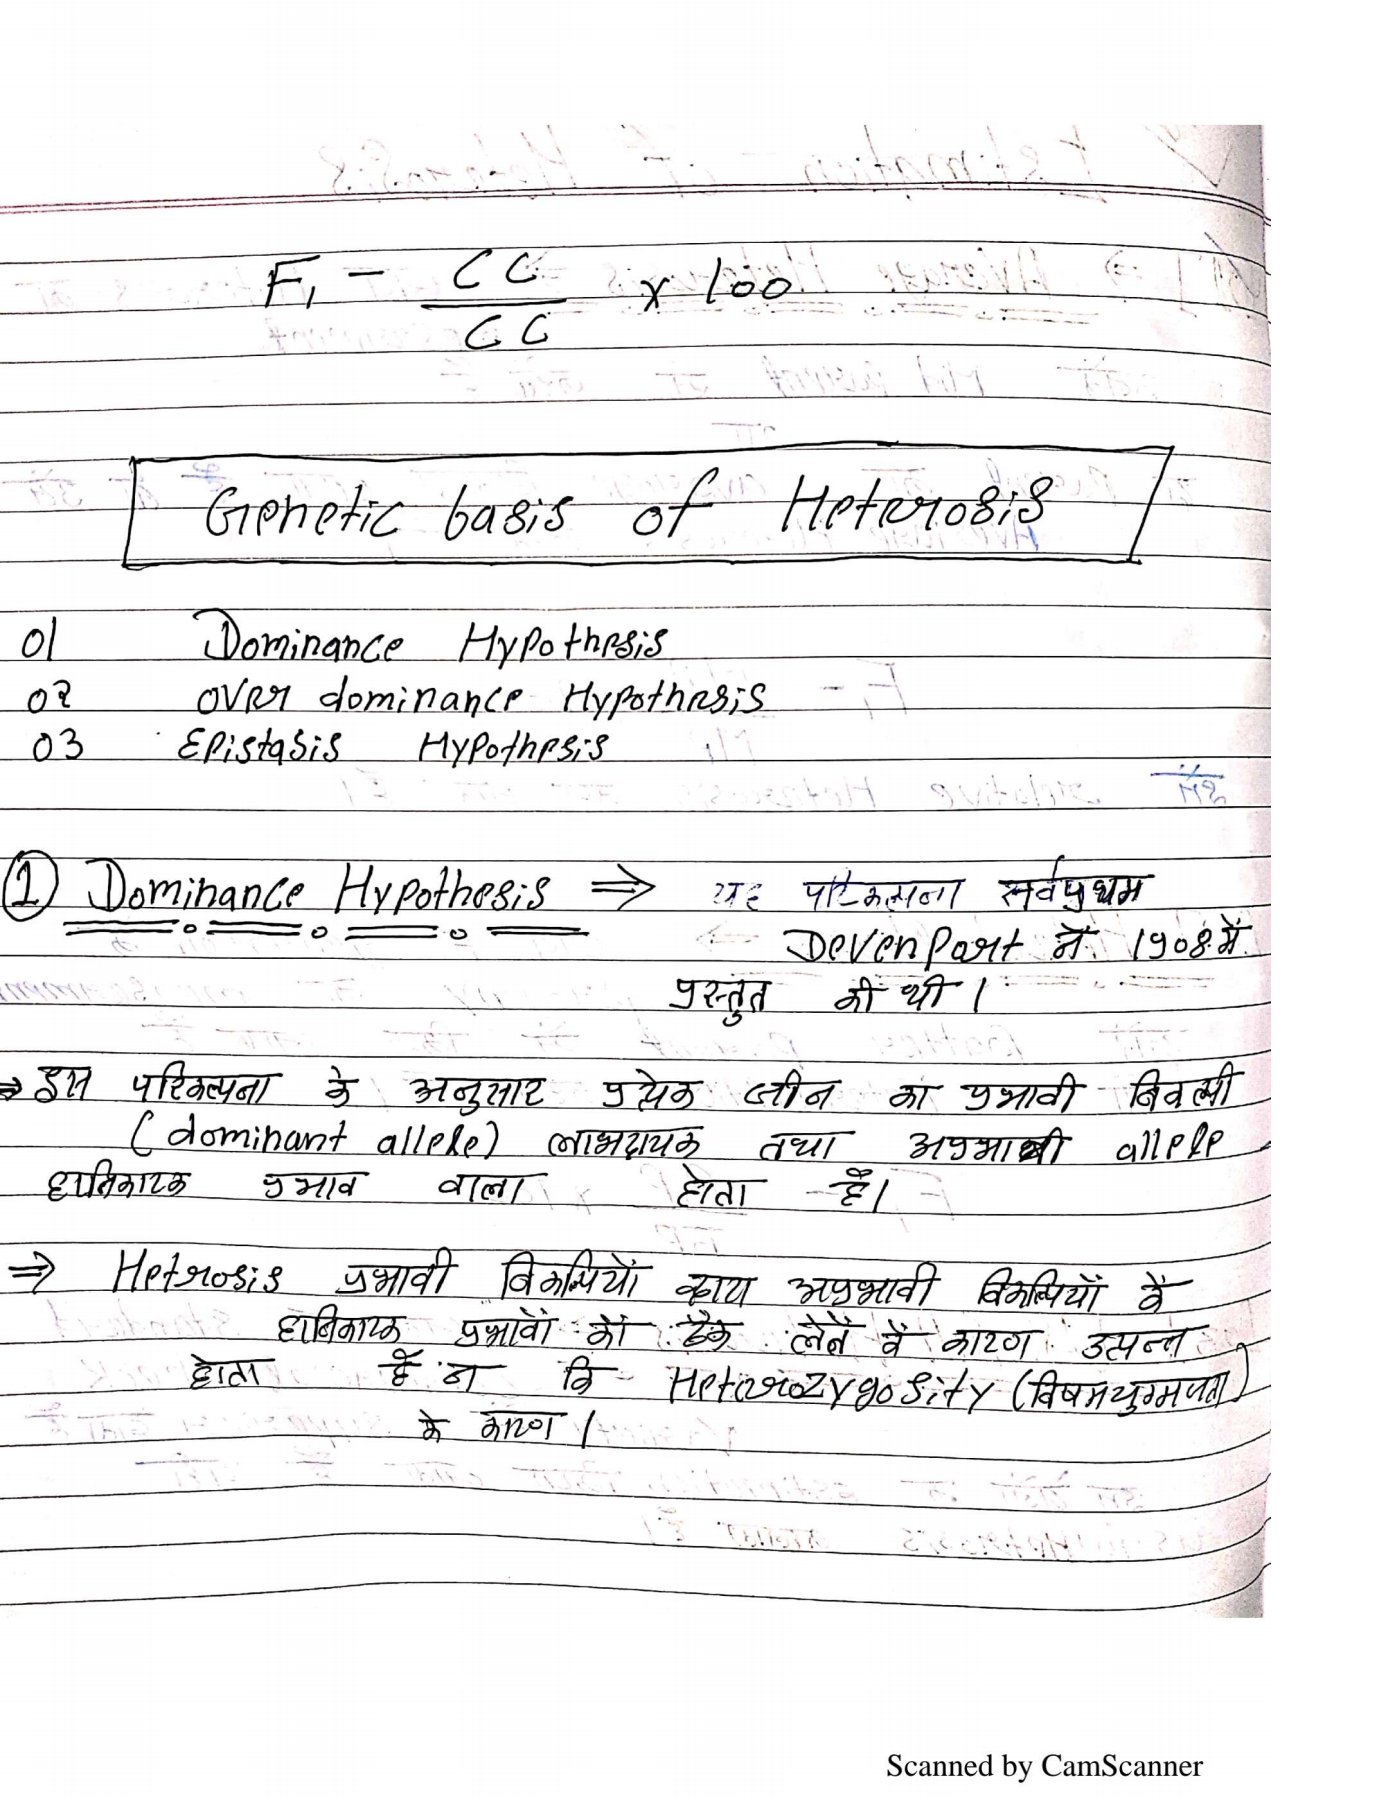 F₁ - CC
CC
x 100
Genetic basis of Heterosis
01 Dominance Hypothesis
02 over dominance Hypothesis
03 Epistasis Hypothesis
① Dominance Hypothesis ⇒ यह परिकल्पना सर्वप्रथम
Devenpart ने 1908 में
प्रस्तुत की थी।
⇒ इस परिकल्पना के अनुसार प्रत्येक जीन का प्रभावी विकल्पी
(dominant allele) लाभदायक तथा अप्रभावी allele
हानिकारक प्रभाव वाला होता है।
⇒ Hetrosis प्रभावी विकल्पियों द्वारा अप्रभावी विकल्पियों के
हानिकारक प्रभावों को ढंक लेने के कारण उत्पन्न
होता है न कि Heterozygosity (विषमयुग्मजता)
के कारण।
Scanned by CamScanner